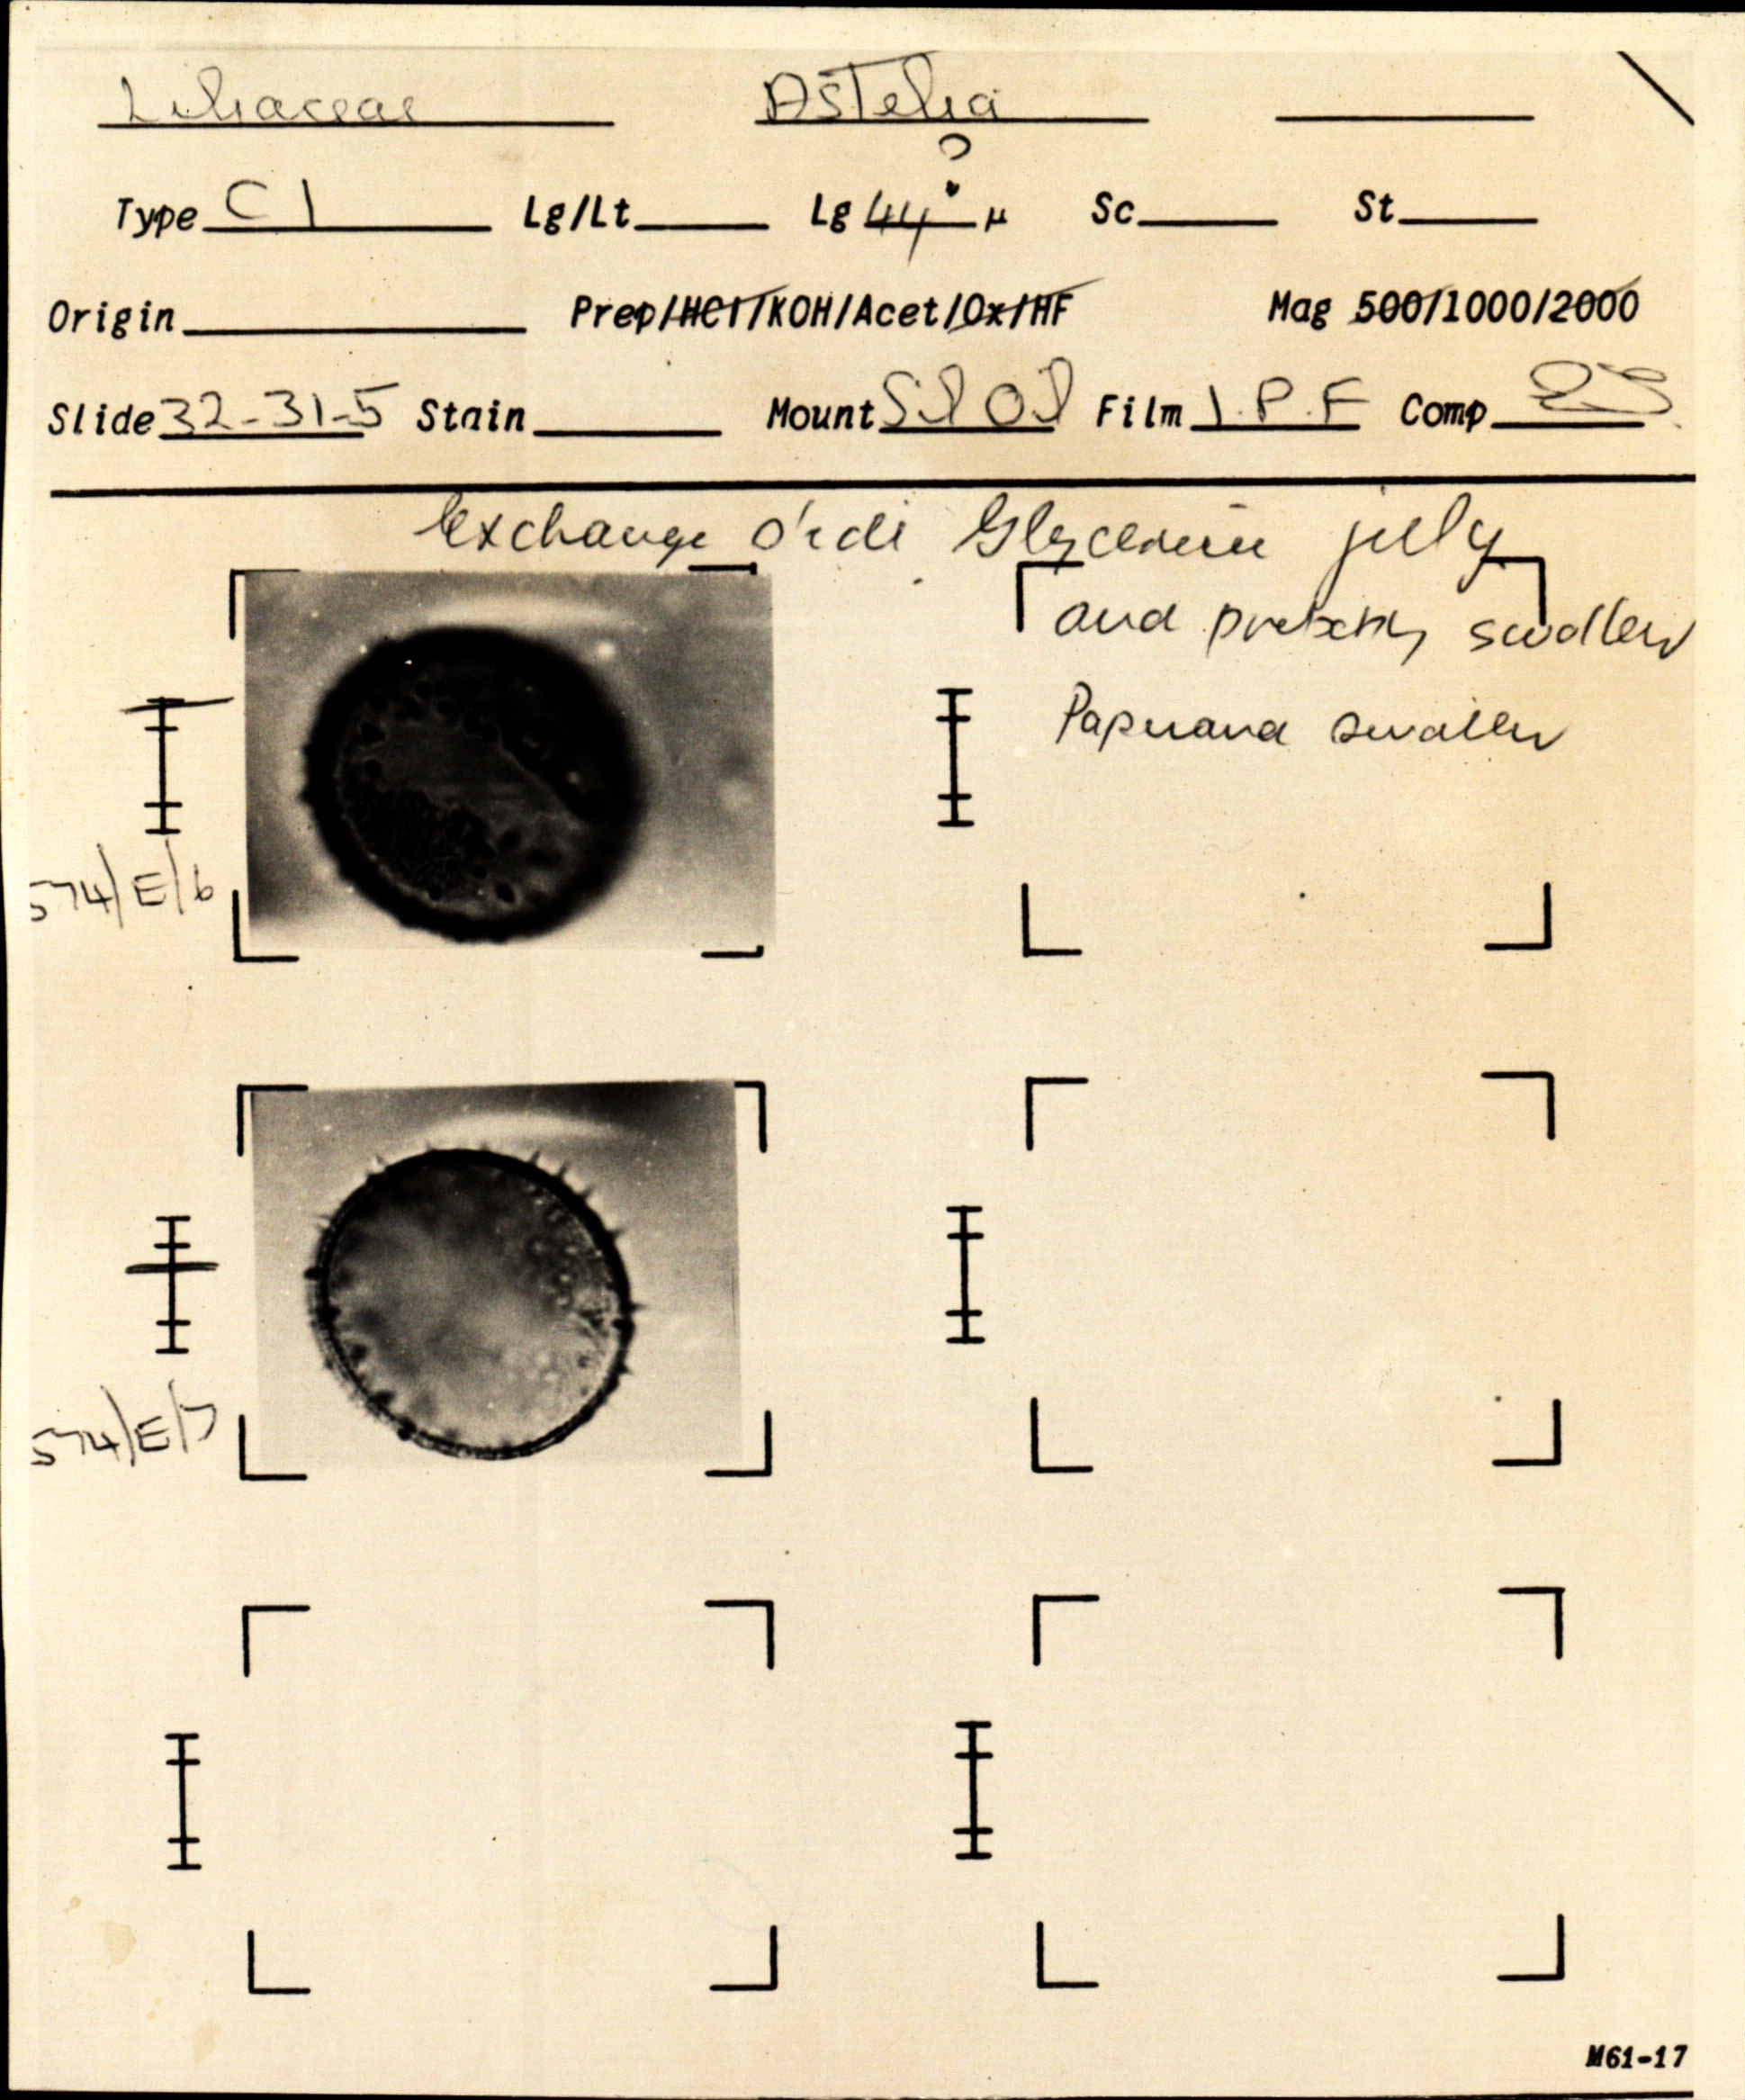 Liliaceae Astelia
?
Type C1 Lg/Lt Lg 44 µ Sc St
Origin Prep/HCl/KOH/Acet/Ox/HF Mag 500/1000/2000
Slide 32-31-5 Stain Mount Sil Oil Film I.P.F Comp
Exchange Glycerine jelly
and probably swollen
574/E/6
574/E/7
M61-17